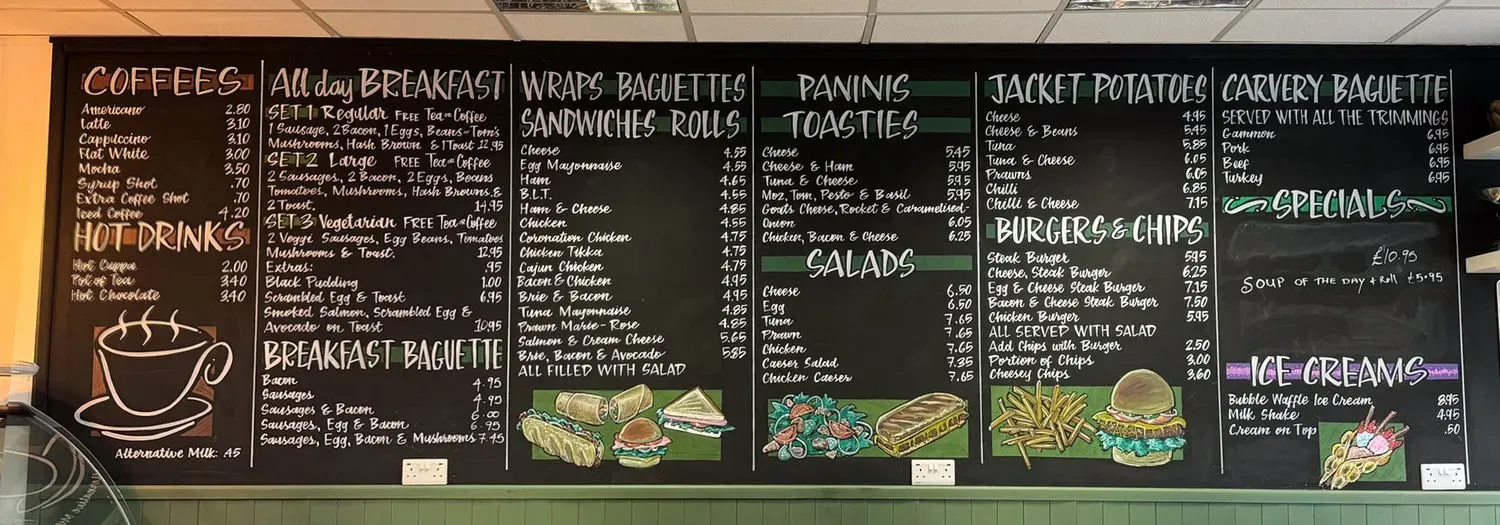 COFFEES
Americano 2.80
Latte 3.10
Cappuccino 3.10
Flat White 3.00
Mocha 3.50
Syrup Shot .70
Extra Coffee Shot .70
Iced Coffee 4.20
HOT DRINKS
Hot Cuppa 2.00
Pot of Tea 3.40
Hot Chocolate 3.40
Alternative Milk: .45
All day BREAKFAST
SET 1 Regular FREE Tea or Coffee
1 Sausage, 2 Bacon, 1 Eggs, Beans or Tom's
Mushrooms, Hash Brown & 1 Toast 12.95
SET 2 Large FREE Tea or Coffee
2 Sausages, 2 Bacon, 2 Eggs, Beans
Tomatoes, Mushrooms, Hash Browns &
2 Toast. 14.95
SET 3 Vegetarian FREE Tea or Coffee
2 Veggi Sausages, Egg Beans, Tomatoes
Mushrooms & Toast. 12.95
Extras: .95
Black Pudding 1.00
Scrambled Egg & Toast 6.95
Smoked Salmon, Scrambled Egg &
Avocado on Toast 10.95
BREAKFAST BAGUETTE
Bacon 4.95
Sausages 4.95
Sausages & Bacon 6.00
Sausages, Egg & Bacon 6.95
Sausages, Egg, Bacon & Mushrooms 7.45
WRAPS BAGUETTES
SANDWICHES ROLLS
Cheese 4.55
Egg Mayonnaise 4.55
Ham 4.65
B.L.T. 4.55
Ham & Cheese 4.85
Chicken 4.55
Coronation Chicken 4.75
Chicken Tikka 4.75
Cajun Chicken 4.75
Bacon & Chicken 4.95
Brie & Bacon 4.95
Tuna Mayonnaise 4.85
Prawn Marie-Rose 4.85
Salmon & Cream Cheese 5.65
Brie, Bacon & Avocado 5.85
ALL FILLED WITH SALAD
PANINIS
TOASTIES
Cheese 5.45
Cheese & Ham 5.95
Tuna & Cheese 5.95
Moz, Tom, Pesto & Basil 5.95
Goats Cheese, Rocket & Caramelised-
Onion 6.05
Chicken, Bacon & Cheese 6.25
SALADS
Cheese 6.50
Egg 6.50
Tuna 7.65
Prawn 7.65
Chicken 7.65
Caeser Salad 7.35
Chicken Caeser 7.65
JACKET POTATOES
Cheese 4.95
Cheese & Beans 5.45
Tuna 5.85
Tuna & Cheese 6.05
Prawns 6.05
Chilli 6.85
Chilli & Cheese 7.15
BURGERS & CHIPS
Steak Burger 5.95
Cheese, Steak Burger 6.25
Egg & Cheese Steak Burger 7.15
Bacon & Cheese Steak Burger 7.50
Chicken Burger 5.95
ALL SERVED WITH SALAD
Add Chips with Burger 2.50
Portion of Chips 3.00
Cheesey Chips 3.60
CARVERY BAGUETTE
SERVED WITH ALL THE TRIMMINGS
Gammon 6.95
Pork 6.95
Beef 6.95
Turkey 6.95
SPECIALS
£10.95
SOUP OF THE DAY + Roll £5.95
ICE CREAMS
Bubble Waffle Ice Cream 8.95
Milk Shake 4.95
Cream on Top .50